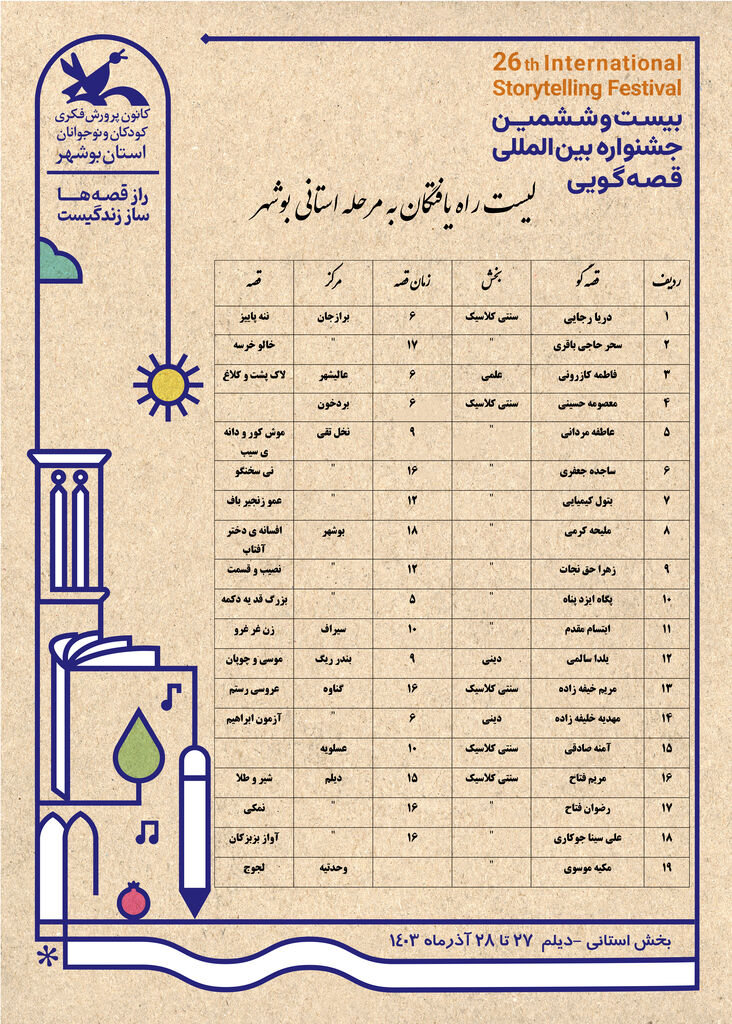 26th International
Storytelling Festival
بیست‌وششمین
جشنواره بین‌المللی
قصه‌گویی
کانون پرورش فکری
کودکان و نوجوانان
استان بوشهر
راز قصه‌هــا
ساز زندگیست
لیست راه یافتگان به مرحله استانی بوشهر
ردیف قصه گو بخش زمان قصه مرکز قصه
۱ دریا رجایی سنتی کلاسیک ۶ برازجان ننه پاییز
۲ سحر حاجی باقری " ۱۷ " خالو خرسه
۳ فاطمه کازرونی علمی ۶ عالیشهر لاک پشت و کلاغ
۴ معصومه حسینی سنتی کلاسیک ۶ بردخون
۵ عاطفه مردانی " ۹ نخل تقی موش کور و دانه
ی سیب
۶ ساجده جعفری " ۱۶ " نی سخنگو
۷ بتول کیمیایی " ۱۲ " عمو زنجیر باف
۸ ملیحه کرمی " ۱۸ بوشهر افسانه ی دختر
آفتاب
۹ زهرا حق نجات " ۱۲ " نصیب و قسمت
۱۰ پگاه ایزد پناه " ۵ " بزرگ قد یه دکمه
۱۱ ابتسام مقدم " ۱۰ سیراف زن غر غرو
۱۲ یلدا سالمی دینی ۹ بندر ریگ موسی و چوپان
۱۳ مریم خیفه زاده سنتی کلاسیک ۱۶ گناوه عروسی رستم
۱۴ مهدیه خلیفه زاده دینی ۶ " آزمون ابراهیم
۱۵ آمنه صادقی سنتی کلاسیک ۱۰ عسلویه
۱۶ مریم فتاح سنتی کلاسیک ۱۵ دیلم شیر و طلا
۱۷ رضوان فتاح " ۱۶ " نمکی
۱۸ علی سینا جوکاری " ۱۶ " آواز بزبزکان
۱۹ مکیه موسوی " وحدتیه لجوج
بخش استانی -دیلم ۲۷ تا ۲۸ آذرماه ۱۴۰۳